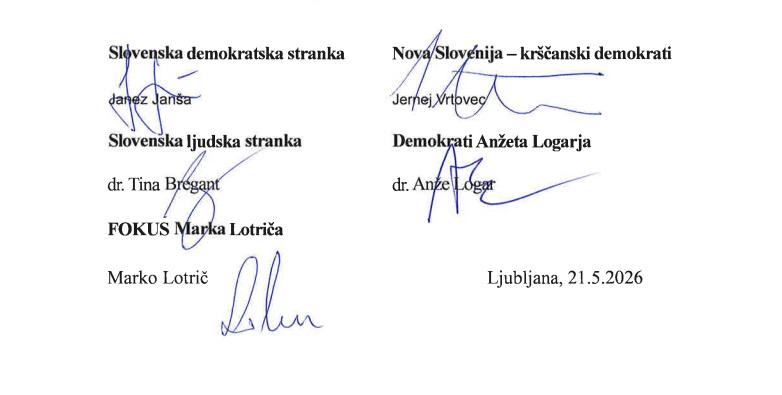 Slovenska demokratska stranka
Janez Janša
Nova Slovenija – krščanski demokrati
Jernej Vrtovec
Slovenska ljudska stranka
dr. Tina Bregant
Demokrati Anžeta Logarja
dr. Anže Logar
FOKUS Marka Lotriča
Marko Lotrič
Ljubljana, 21.5.2026